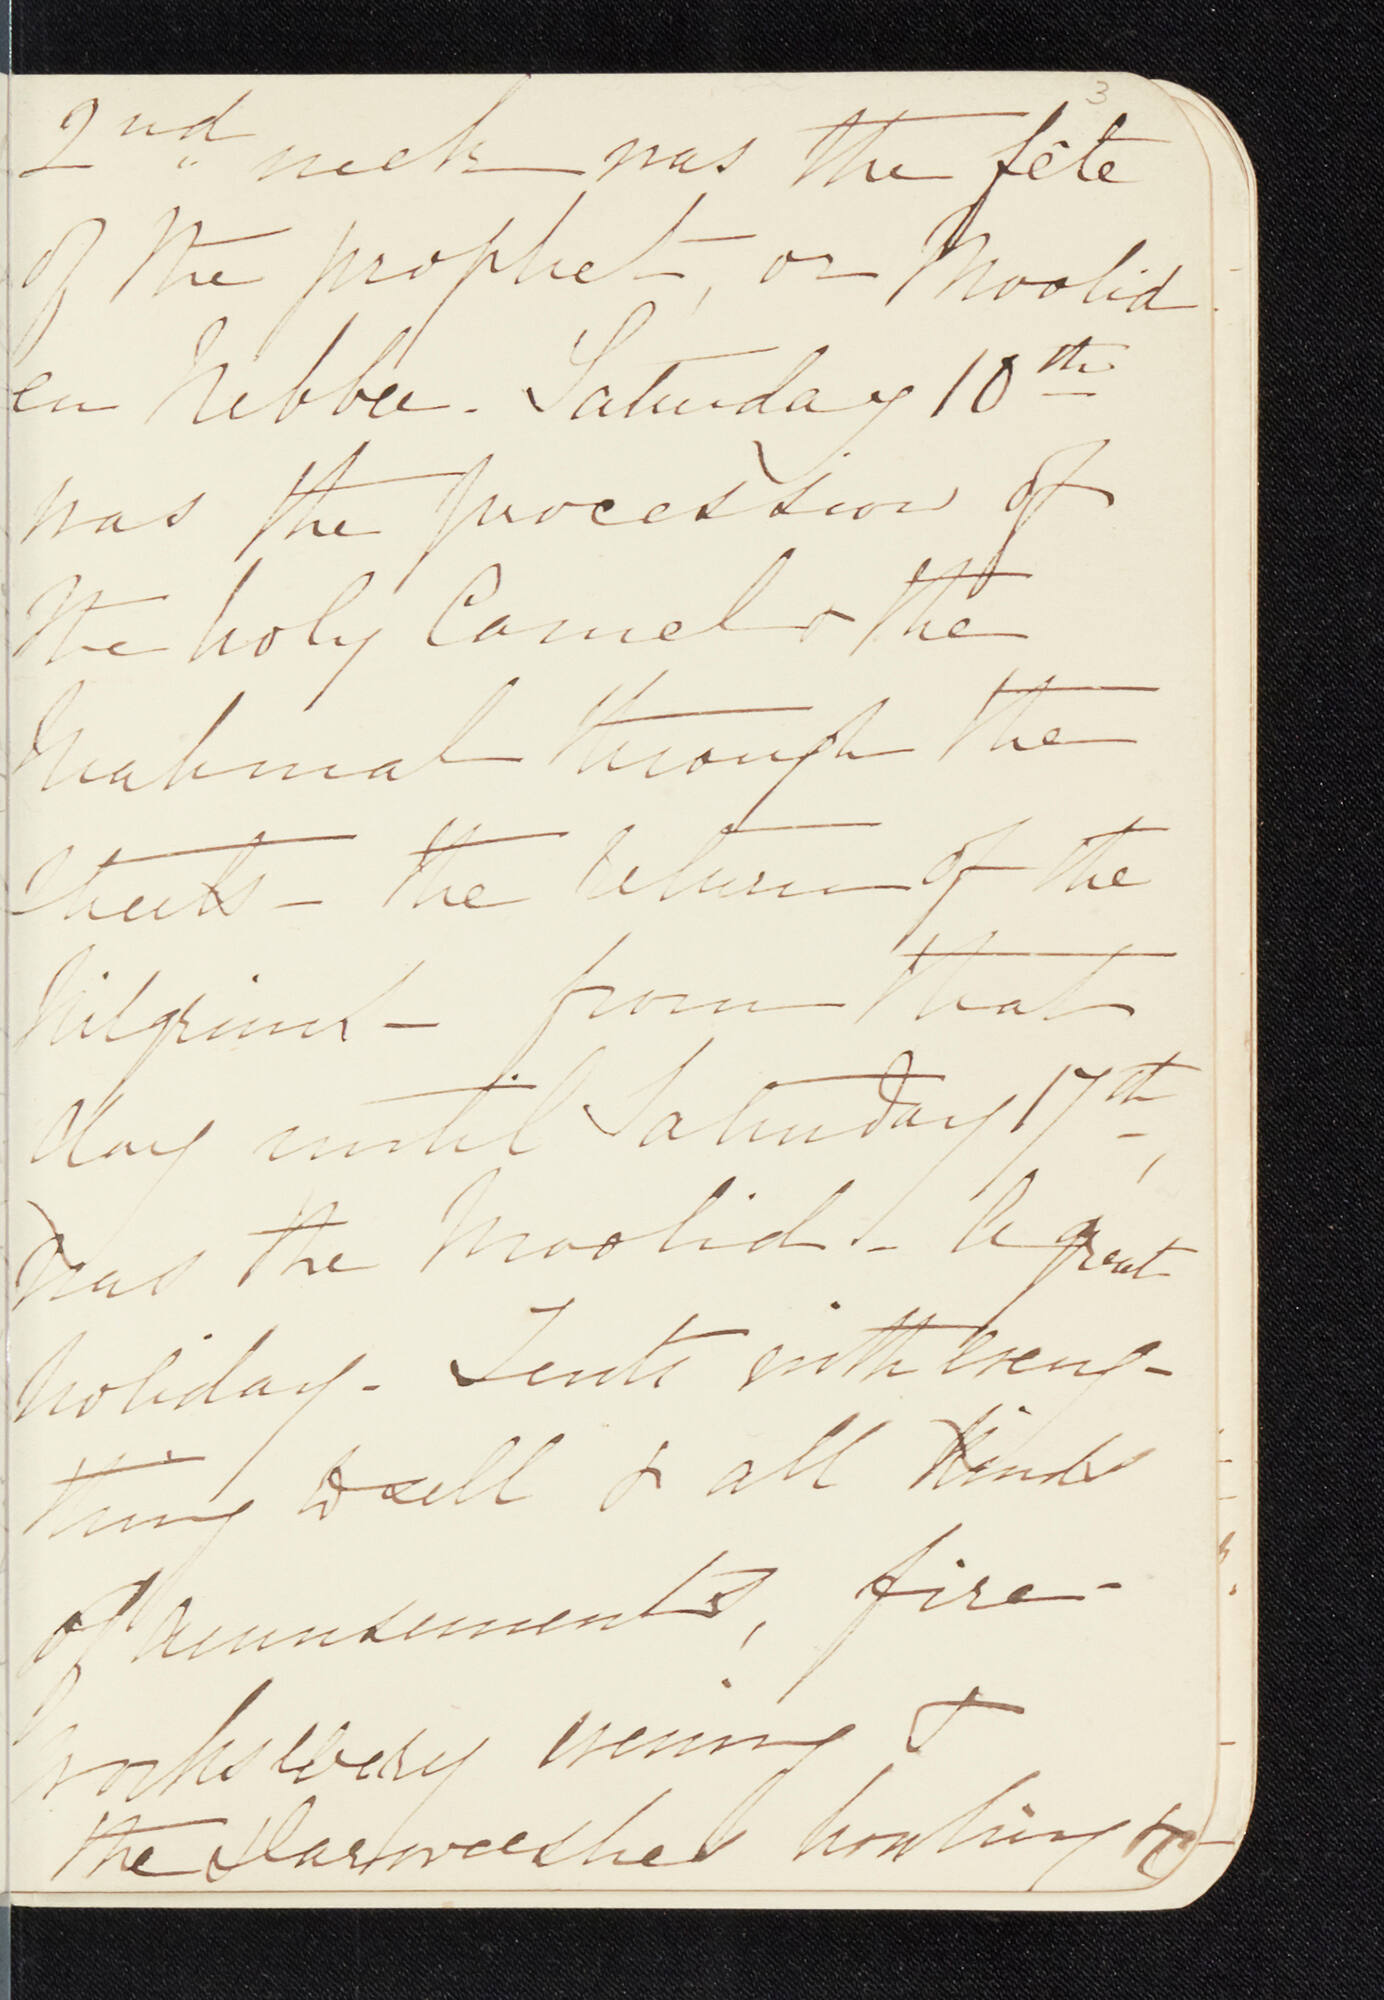 3
2nd week was the fête
of the prophet, or Moolid
en Nebbee. Saturday 10th
was the procession of
the holy Camel & the
Mahmal through the
streets - the return of the
Pilgrims - from that
day until Saturday 17th,
was the Moolid - A great
holiday - Tents with every-
thing to sell & all kinds
of amusements, fire-
works every evening &
the Darweeshes howling &